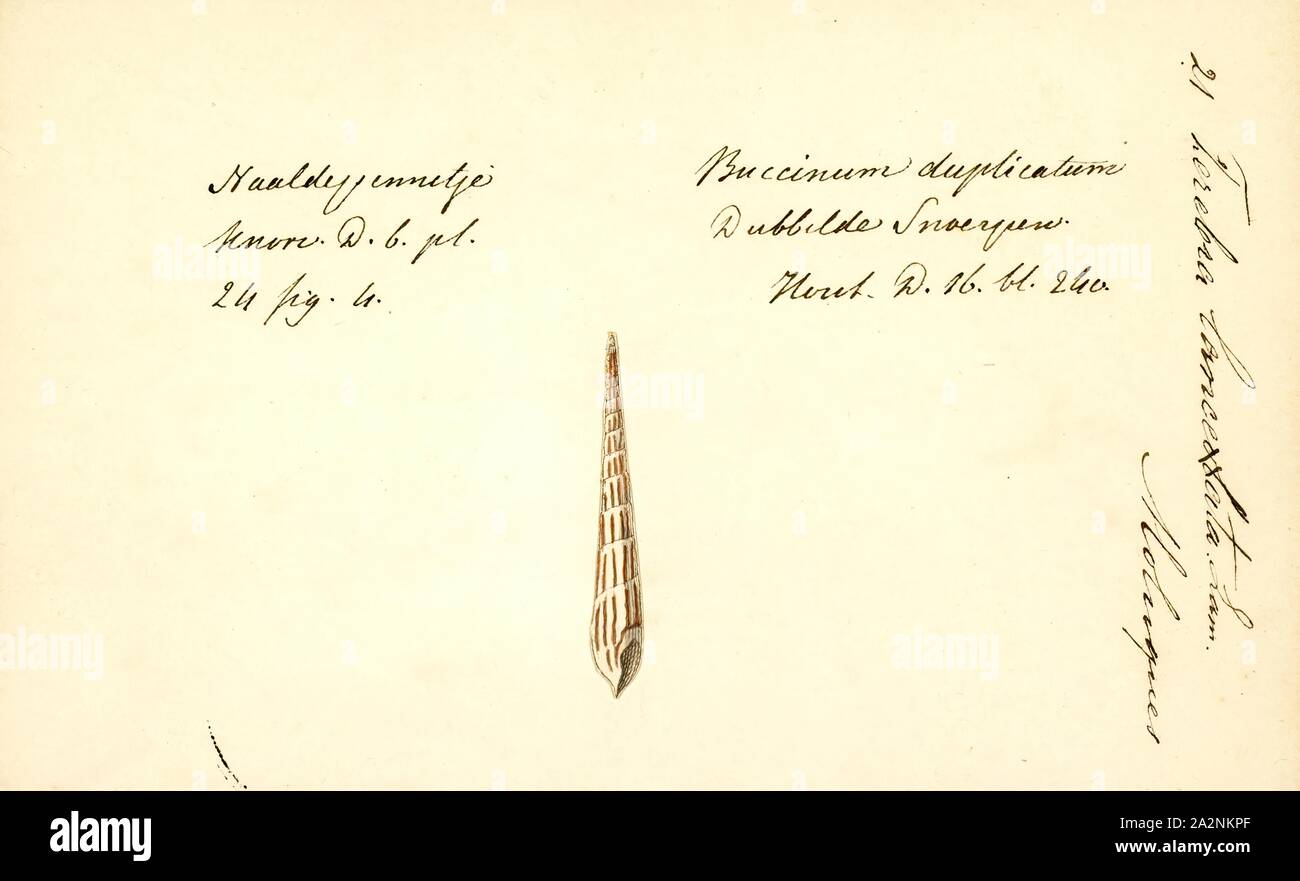 Naaldepennetje
Knorr. D. 6. pl.
24 fig. 4.
Buccinum duplicatum
Dubbilde Snoerpen.
Hout. D. 16. bl. 240.
21 Terebra lanceolata. Lam.
Moluques
alamy
Image ID: A2NKPF
www.alamy.com